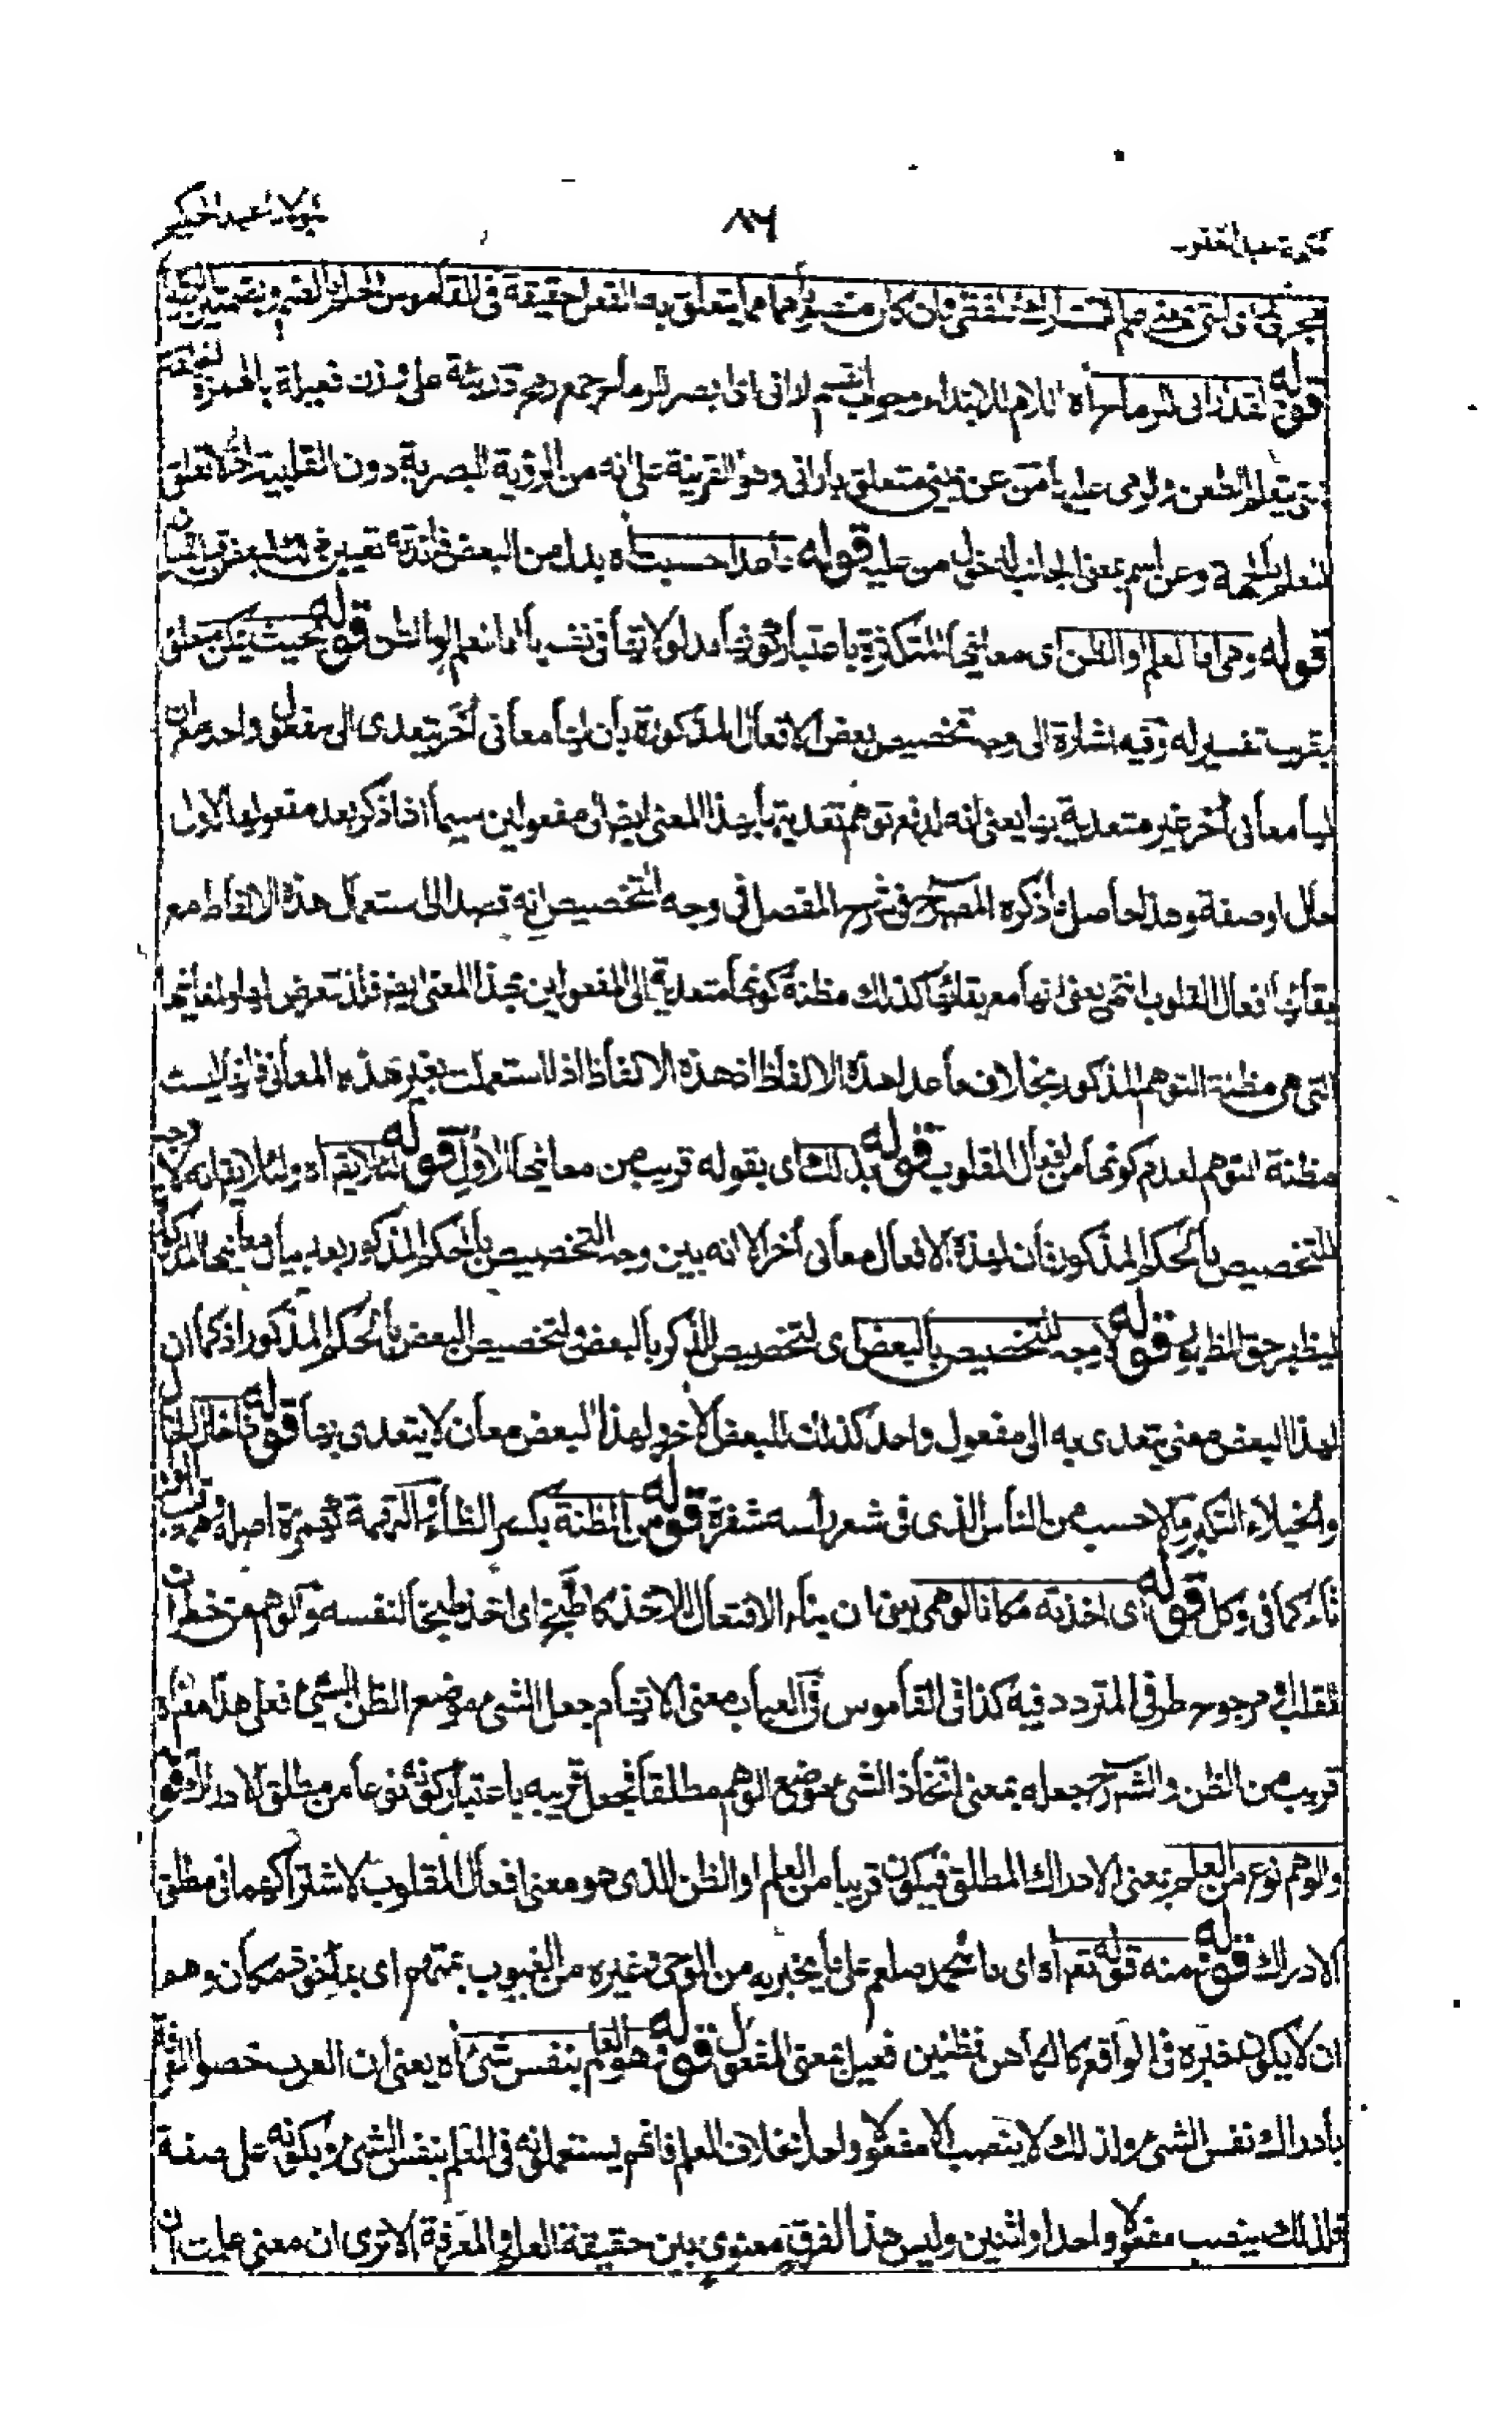 ٨٦
قوله لقد اراني للرماح اه اللام للابتداء وجواب لاني اذا بصر للرماح جمع رمح دريئة على وزن فعيلة بالهمزة
يتعلم الطعن والرمي عليه من عن يميني متعلق باراني وهو القرينة على انه من الرؤية البصرية دون القلبية
وعن اسم بمعنى الجانب لدخول من عليه قوله ما عدا حسبت اه بدل من البعض
قوله وهي اما العلم او الظن اى معانيها المتكثرة باعتبار كونها مدلولاتها في نفسها اما العلم او الظن قوله بحيث
بقريب تفسير له وفيه اشارة الى وجه تخصيص بعض الافعال المذكورة بان لها معاني أخر يتعدى الى مفعول واحد مع ان
لها معاني أخر غير متعدية بها يعني انه لدفع توهم تعديتها بهذا المعنى ايضا الى مفعولين سيما اذا ذكر بعد مفعولها الاول
حال او صفة وهذا حاصل ما ذكره المصرح في شرح المفصل في وجه التخصيص انه قصد الى استعمال هذه الالفاظ مع
بقائها افعال القلوب انتهى يعني انها مع بقائها كذلك مظنة كونها متعدية الى المفعولين بهذا المعنى ايضا فلذا تعرض لها ولمعانيها
التي هي مظنة التوهم المذكور بخلاف ما عدا هذه الالفاظ اذ هذه الالفاظ اذا استعملت بغير هذه المعاني فانها ليست
مظنة التوهم لعدم كونها من افعال القلوب قوله بذلك اى بقوله قريب من معانيها الاول قوله لئلا يقال اه ولئلا يقال انه لا وجه
للتخصيص بالحكم المذكور فان لهذه الافعال معاني أخر الا انه بين وجه التخصيص بالحكم المذكور بعد بيان معانيها المذكورة
ليظهر حق الظهور قوله لا وجه للتخصيص بالبعض اى لتخصيص الذكر بالبعض لتخصيص البعض بالحكم المذكور اذ كما ان
لهذا البعض معنى يتعدى به الى مفعول واحد كذلك للبعض الآخر ولهذا البعض معان لا يتعدى بها قوله
والخيلاء التكبر والاحسب من الناس الذى في شعر رأسه شقرة قوله من الظنة بكسر الظاء التهمة كهمزة اصله وهمة
تاء كما في وكل قوله اى اخذته مكانا لوهمي بين ان بناء الافتعال للاتخاذ كاطبخ اى اتخذ طبيخا لنفسه والوهم من خطرات
القلب او مرجوح طرفي المتردد فيه كذا في القاموس في العباب معنى الاتهام جعل الشيء موضع الظن السيئ فعلى هذا معناه
قريب من الظن والشرح جعله بمعنى اتخاذ الشيء موضع الوهم مطلقا فجعل قريبه باعتبار كونه نوعا من مطلق الادراك قوله
والوهم نوع من العلم يعني الادراك المطلق فيكون قريبا من العلم او الظن الذى هو معنى افعال القلوب لاشتراكهما في مطلق
الادراك قوله منه قوله تع اه اى ما محمد صلعم على ما يخبر به من الوحي وغيره من الغيوب بمتهم اى بمأخوذ مكان وهم
ان لا يكون خبره في الواقع كالكاهن فظنين فعيل بمعنى المفعول قوله وهو العلم بنفس شيء اه يعني ان العرب خصوا المعرفة
بادراك نفس الشيء ولذلك لا ينصب الا مفعولا واحدا بخلاف العلم فانهم يستعملونه في العلم بنفس الشيء وبكونه على صفة
فلذلك ينصب مفعولا واحدا واثنين وليس هذا الفرق معنوى بين حقيقة العلم والمعرفة الا ترى ان معنى علمت ان